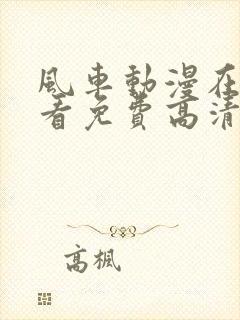 風車動漫在
看免費高清
高楓